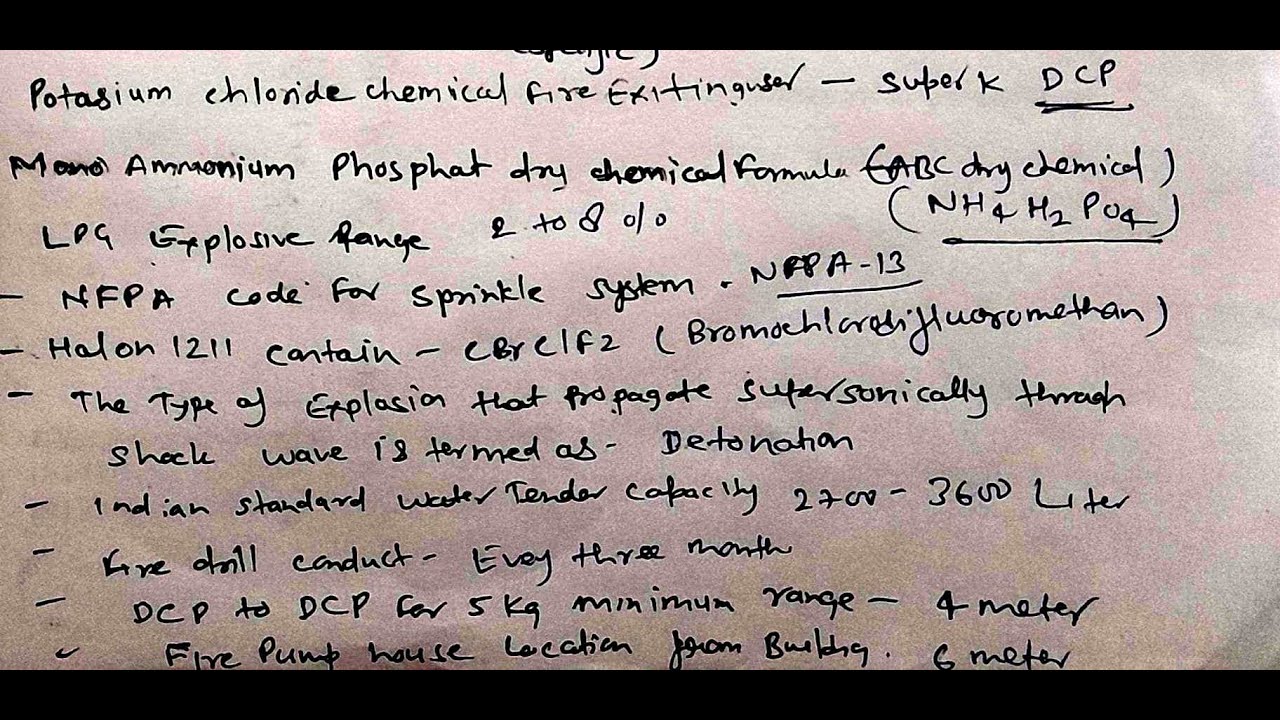 Potasium chloride chemical Fire Exitinguser – Super K DCP
Mono Ammonium Phosphat dry chemical Formula (ABC dry chemical)
(NH4 H2 PO4)
LPG Explosive Range 2 to 8 %
- NFPA code for sprinkle system. NFPA-13
- Halon 1211 contain – CBrClF2 (Bromochlorodifluoromethan)
- The Type of Explosion that propagate supersonically through
shock wave is termed as - Detonation
- Indian standard water Tender capacity 2700 - 3600 Liter
- Fire drill conduct - Evey three month
- DCP to DCP for 5 Kg minimum range – 4 meter
Fire Pump house Location from Buildng. 6 meter